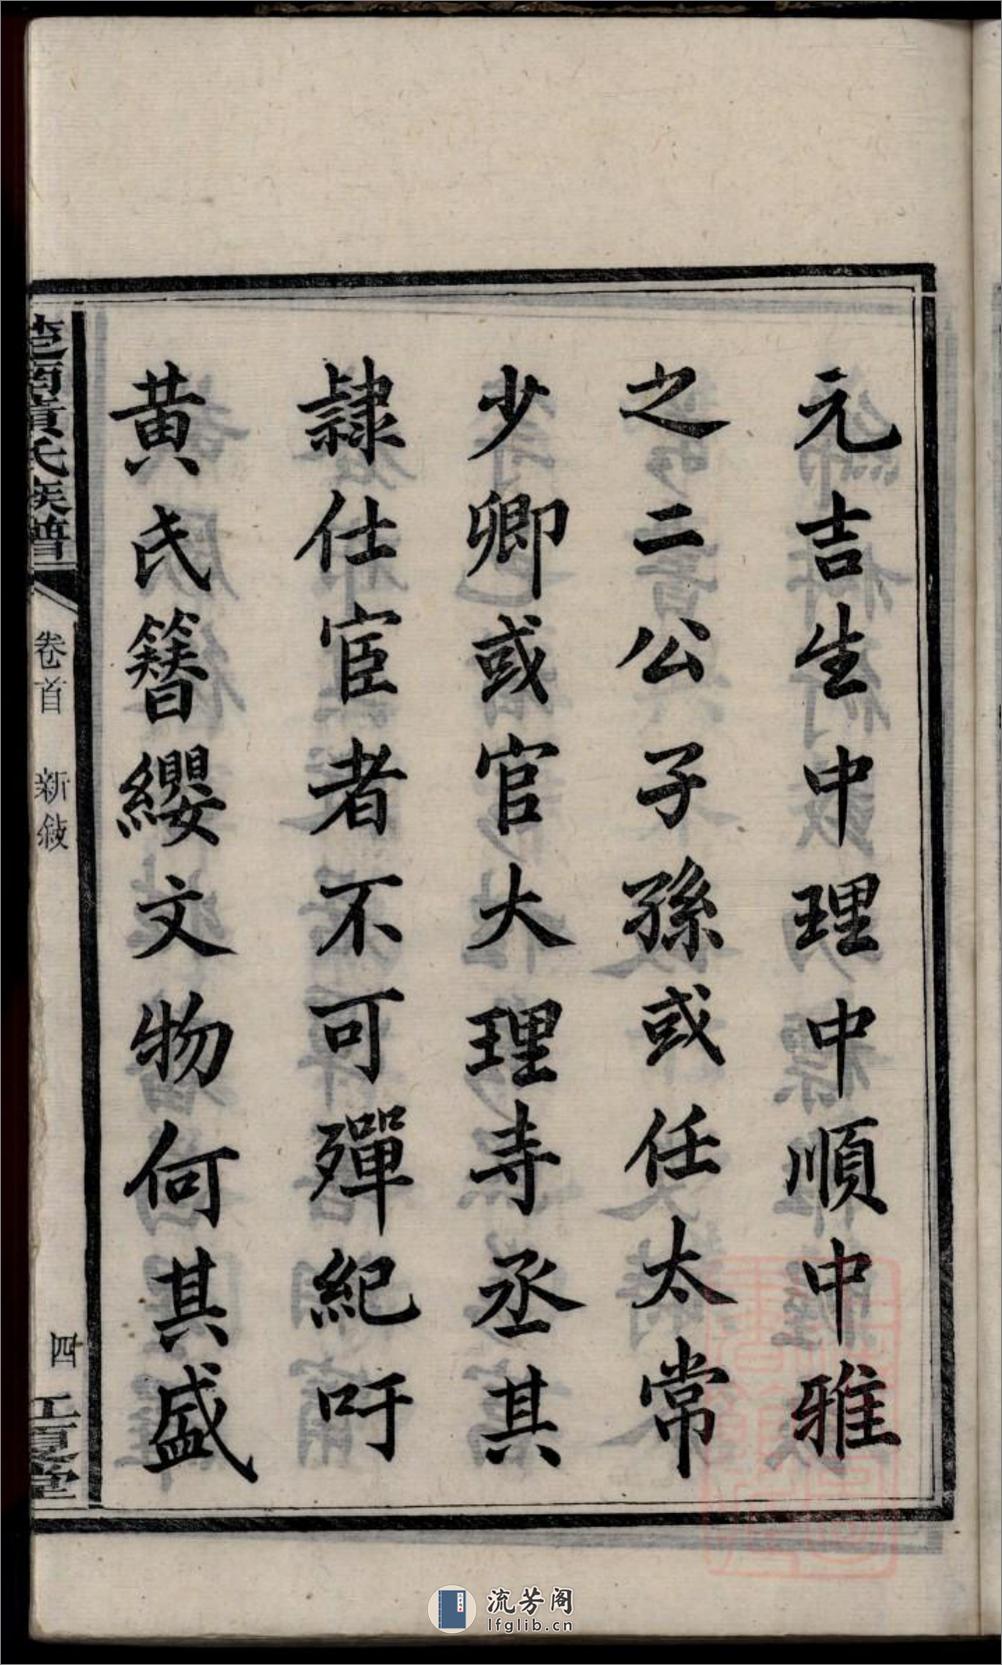 元吉生中理中順中雅
之二公子孫或任太常
少卿或官大理寺丞其
隷仕宦者不可殫紀吁
黄氏簪纓文物何其盛
楚南黃氏族譜
卷首 新敍
四
江夏堂
流芳阁
lfglib.cn